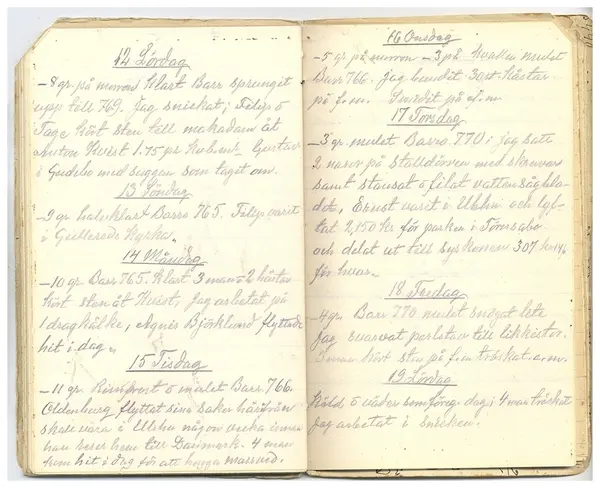 12 Lördag
-8 gr. på morron klart Barr sprungit
upp till 769. Jag snickat, Filip o
Tage kört sten till makadam åt
Anton Kvist 1.75 pr kubm. Gustav
i Gudebo med suggan som taget om.
13 Söndag
-9 gr halvklart Barro 765. Filip varit
i Gullereds Kyrka.
14 Måndag
-10 gr Barr 765. Klart 3 man o 2 hästar
kört sten åt Kvist, Jag arbetat på
1 dragkälke, Agnis Björklund flyttade
hit i dag.
15 Tisdag
-11 gr. Rimfrost o mulet Barr. 766.
Oldenburg flyttat sina saker härifrån
skall vara i Ulshu någon vecka innan
han reser hem till Danmark. 4 man
kom hit i dag för att hugga massved.
16 Onsdag
-5 gr på morron -3 på kvällen mulet
Barr 766. Jag bundit 30 st. Kvastar
på f.m. Smidit på e.m.
17 Torsdag
-3 gr. mulet Barro 770, jag satt
2 naror på stalldörren med skruvar
samt stansat o filat vattensågbla-
det, Ernst varit i Ulshu och lyf-
tat 2,150 kr för parken i Törnsabo
och delat ut till syskonen 307 kr 14
för hvar.
18 Fredag
-4 gr. Barr 770 mulet snögat lite
Jag svarvat perlstav till likkistor.
3 man kört sten på f.m. tröskat e.m.
19 Lördag
Köld o väder som föreg. dag, 4 man tröskat
Jag arbetat i snickeri.